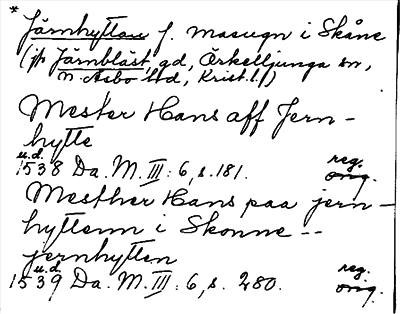 *
Järnhyttan f. masugn i Skåne
(jfr Järnbläst, gd, Örkelljunga sn,
N. Åsbo hd, Krist. l.)
Mester Hans aff Jern-
hytte
u.d. reg.
1538 Da. M. III: 6, s. 181. orig.
Mesther Hans paa jern-
hyttenn i Skonne --
jernhytten
u.d. reg.
1539 Da. M. III: 6, s. 280. orig.